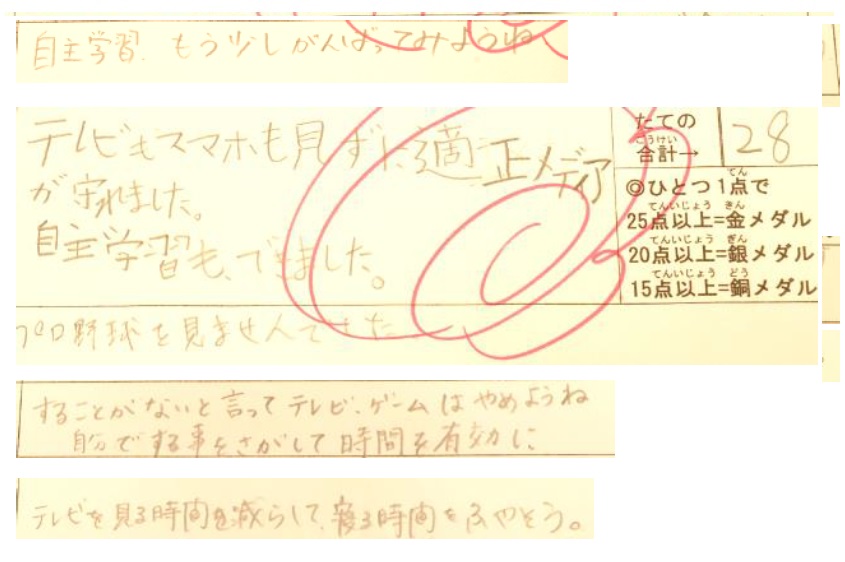 自主学習、もう少しがんばってみようね
テレビもスマホも見ずに適正メディア
が守れました。
自主学習も、できました。
たての
ごうけい
合計→
28
てん
◎ひとつ1点で
てんいじょう きん
25点以上=金メダル
てんいじょう ぎん
20点以上=銀メダル
てんいじょう どう
15点以上=銅メダル
プロ野球を見ませんでした
することがないと言ってテレビ、ゲームはやめようね
自分でする事をさがして時間を有効に
テレビを見る時間を減らして、寝る時間をふやそう。